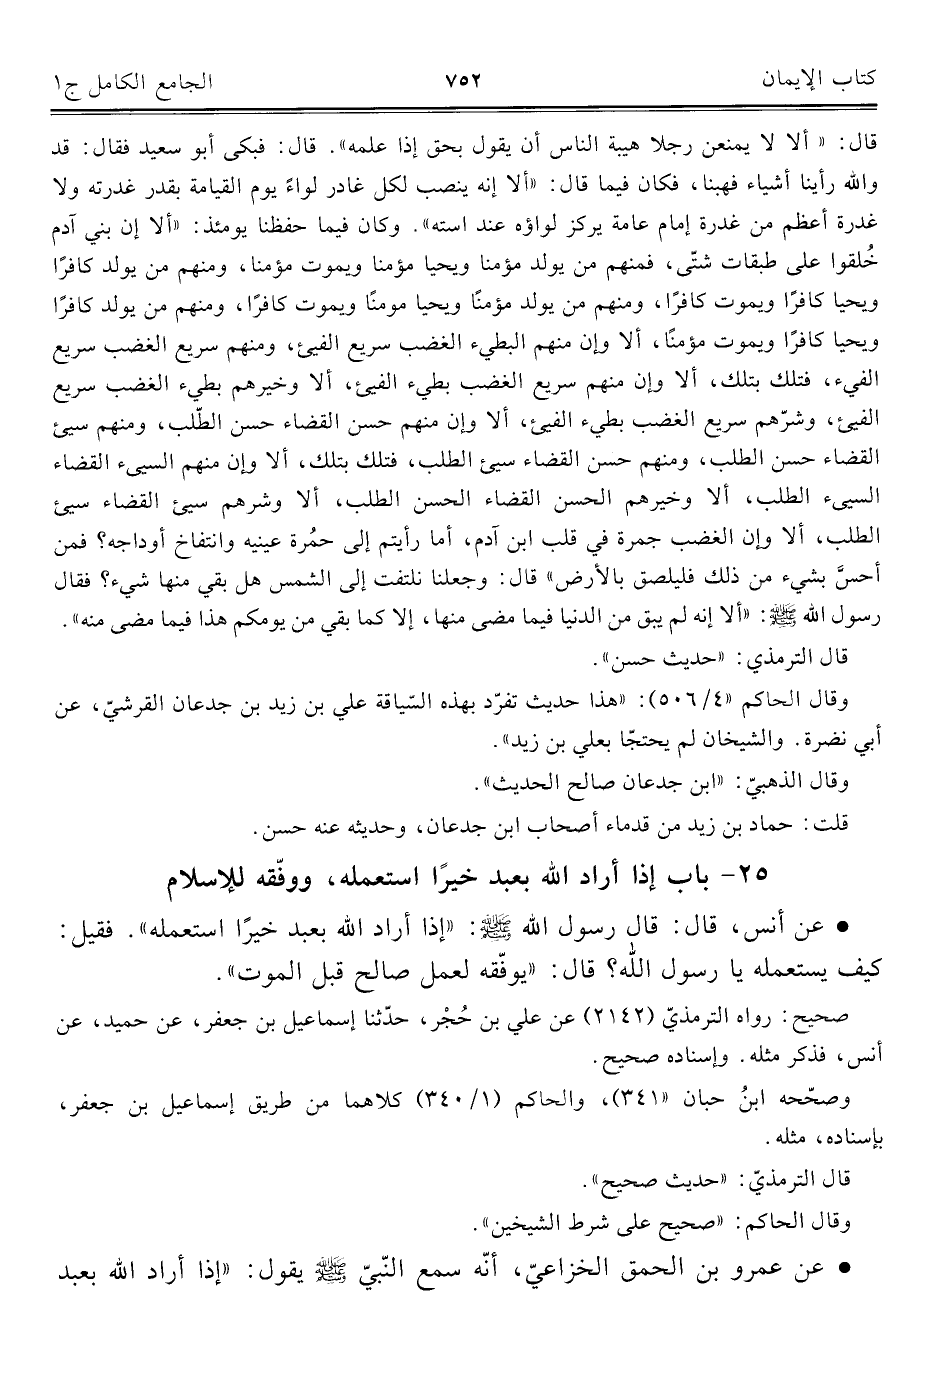 كتاب الإيمان ٧٥٢ الجامع الكامل ج١
قال: « ألا لا يمنعن رجلا هيبة الناس أن يقول بحق إذا علمه». قال: فبكى أبو سعيد فقال: قد
والله رأينا أشياء فهبنا، فكان فيما قال: «ألا إنه ينصب لكل غادر لواءً يوم القيامة بقدر غدرته ولا
غدرة أعظم من غدرة إمام عامة يركز لواؤه عند استه». وكان فيما حفظنا يومئذ: «ألا إن بني آدم
خُلقوا على طبقات شتّى، فمنهم من يولد مؤمنا ويحيا مؤمنا ويموت مؤمنا، ومنهم من يولد كافرًا
ويحيا كافرًا ويموت كافرًا، ومنهم من يولد مؤمنًا ويحيا مومنًا ويموت كافرًا، ومنهم من يولد كافرًا
ويحيا كافرًا ويموت مؤمنًا، ألا وإن منهم البطيء الغضب سريع الفيئ، ومنهم سريع الغضب سريع
الفيء، فتلك بتلك، ألا وإن منهم سريع الغضب بطيء الفيئ، ألا وخيرهم بطيء الغضب سريع
الفيئ، وشرّهم سريع الغضب بطيء الفيئ، ألا وإن منهم حسن القضاء حسن الطّلب، ومنهم سيئ
القضاء حسن الطلب، ومنهم حسن القضاء سيئ الطلب، فتلك بتلك، ألا وإن منهم السيىء القضاء
السيىء الطلب، ألا وخيرهم الحسن القضاء الحسن الطلب، ألا وشرهم سيئ القضاء سيئ
الطلب، ألا وإن الغضب جمرة في قلب ابن آدم، أما رأيتم إلى حمُرة عينيه وانتفاخ أوداجه؟ فمن
أحسَّ بشيء من ذلك فليلصق بالأرض» قال: وجعلنا نلتفت إلى الشمس هل بقي منها شيء؟ فقال
رسول الله ﷺ: «ألا إنه لم يبق من الدنيا فيما مضى منها، إلا كما بقي من يومكم هذا فيما مضى منه».
قال الترمذي: «حديث حسن».
وقال الحاكم «٤/ ٥٠٦): «هذا حديث تفرّد بهذه السّياقة علي بن زيد بن جدعان القرشيّ، عن
أبي نضرة. والشيخان لم يحتجّا بعلي بن زيد».
وقال الذهبيّ: «ابن جدعان صالح الحديث».
قلت: حماد بن زيد من قدماء أصحاب ابن جدعان، وحديثه عنه حسن.
٢٥- باب إذا أراد الله بعبد خيرًا استعمله، ووفّقه للإسلام
• عن أنس، قال: قال رسول الله ﷺ: «إذا أراد الله بعبد خيرًا استعمله». فقيل:
كيف يستعمله يا رسول الله؟ قال: «يوفّقه لعمل صالح قبل الموت».
صحيح: رواه الترمذيّ (٢١٤٢) عن علي بن حُجْر، حدّثنا إسماعيل بن جعفر، عن حميد، عن
أنس، فذكر مثله. وإسناده صحيح.
وصحّحه ابنُ حبان «٣٤١)، والحاكم (١/ ٣٤٠) كلاهما من طريق إسماعيل بن جعفر،
بإسناده، مثله.
قال الترمذيّ: «حديث صحيح».
وقال الحاكم: «صحيح على شرط الشيخين».
• عن عمرو بن الحمق الخزاعيّ، أنّه سمع النّبيّ ﷺ يقول: «إذا أراد الله بعبد